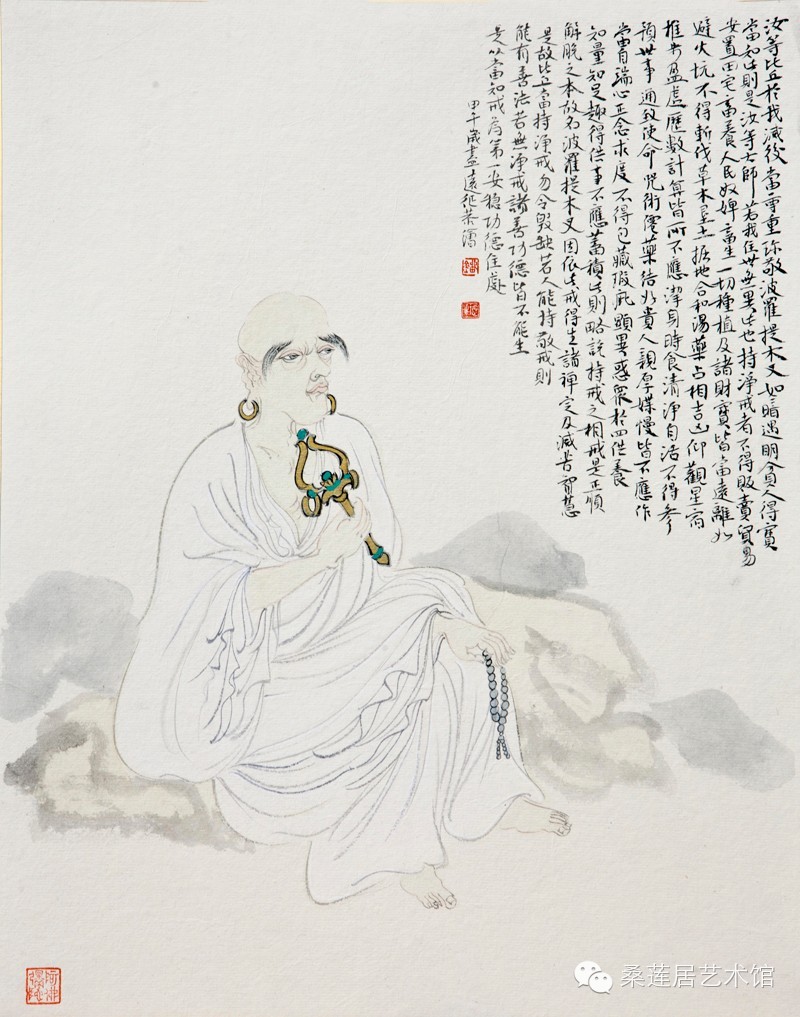 汝等比丘於我滅後當尊重珎敬波羅提木叉如暗遇明貧人得寶
當知此則是汝等大師若我住世無異此也持淨戒者不得販賣貿易
安置田宅畜養人民奴婢畜生一切種植及諸財寶皆當遠離如
避火坑不得斬伐草木墾土掘地合和湯藥占相吉凶仰觀星宿
推步盈虛歷數計算皆所不應潔身時食清淨自活不得參
預世事通致使命咒術僊藥結好貴人親厚媟慢皆不應作
當自端心正念求度不得包藏瑕疵顯異惑眾於四供養
知量知足趣得供事不應蓄積此則略說持戒之相戒是正順
解脫之本故名波羅提木叉因依此戒得生諸禪定及滅苦智慧
是故比丘當持淨戒勿令毀缺若人能持敬戒則
能有善法若無淨戒諸善功德皆不能生
是以當知戒為第一安穩功德住處
甲午歲畫遠
桑蓮居艺术馆